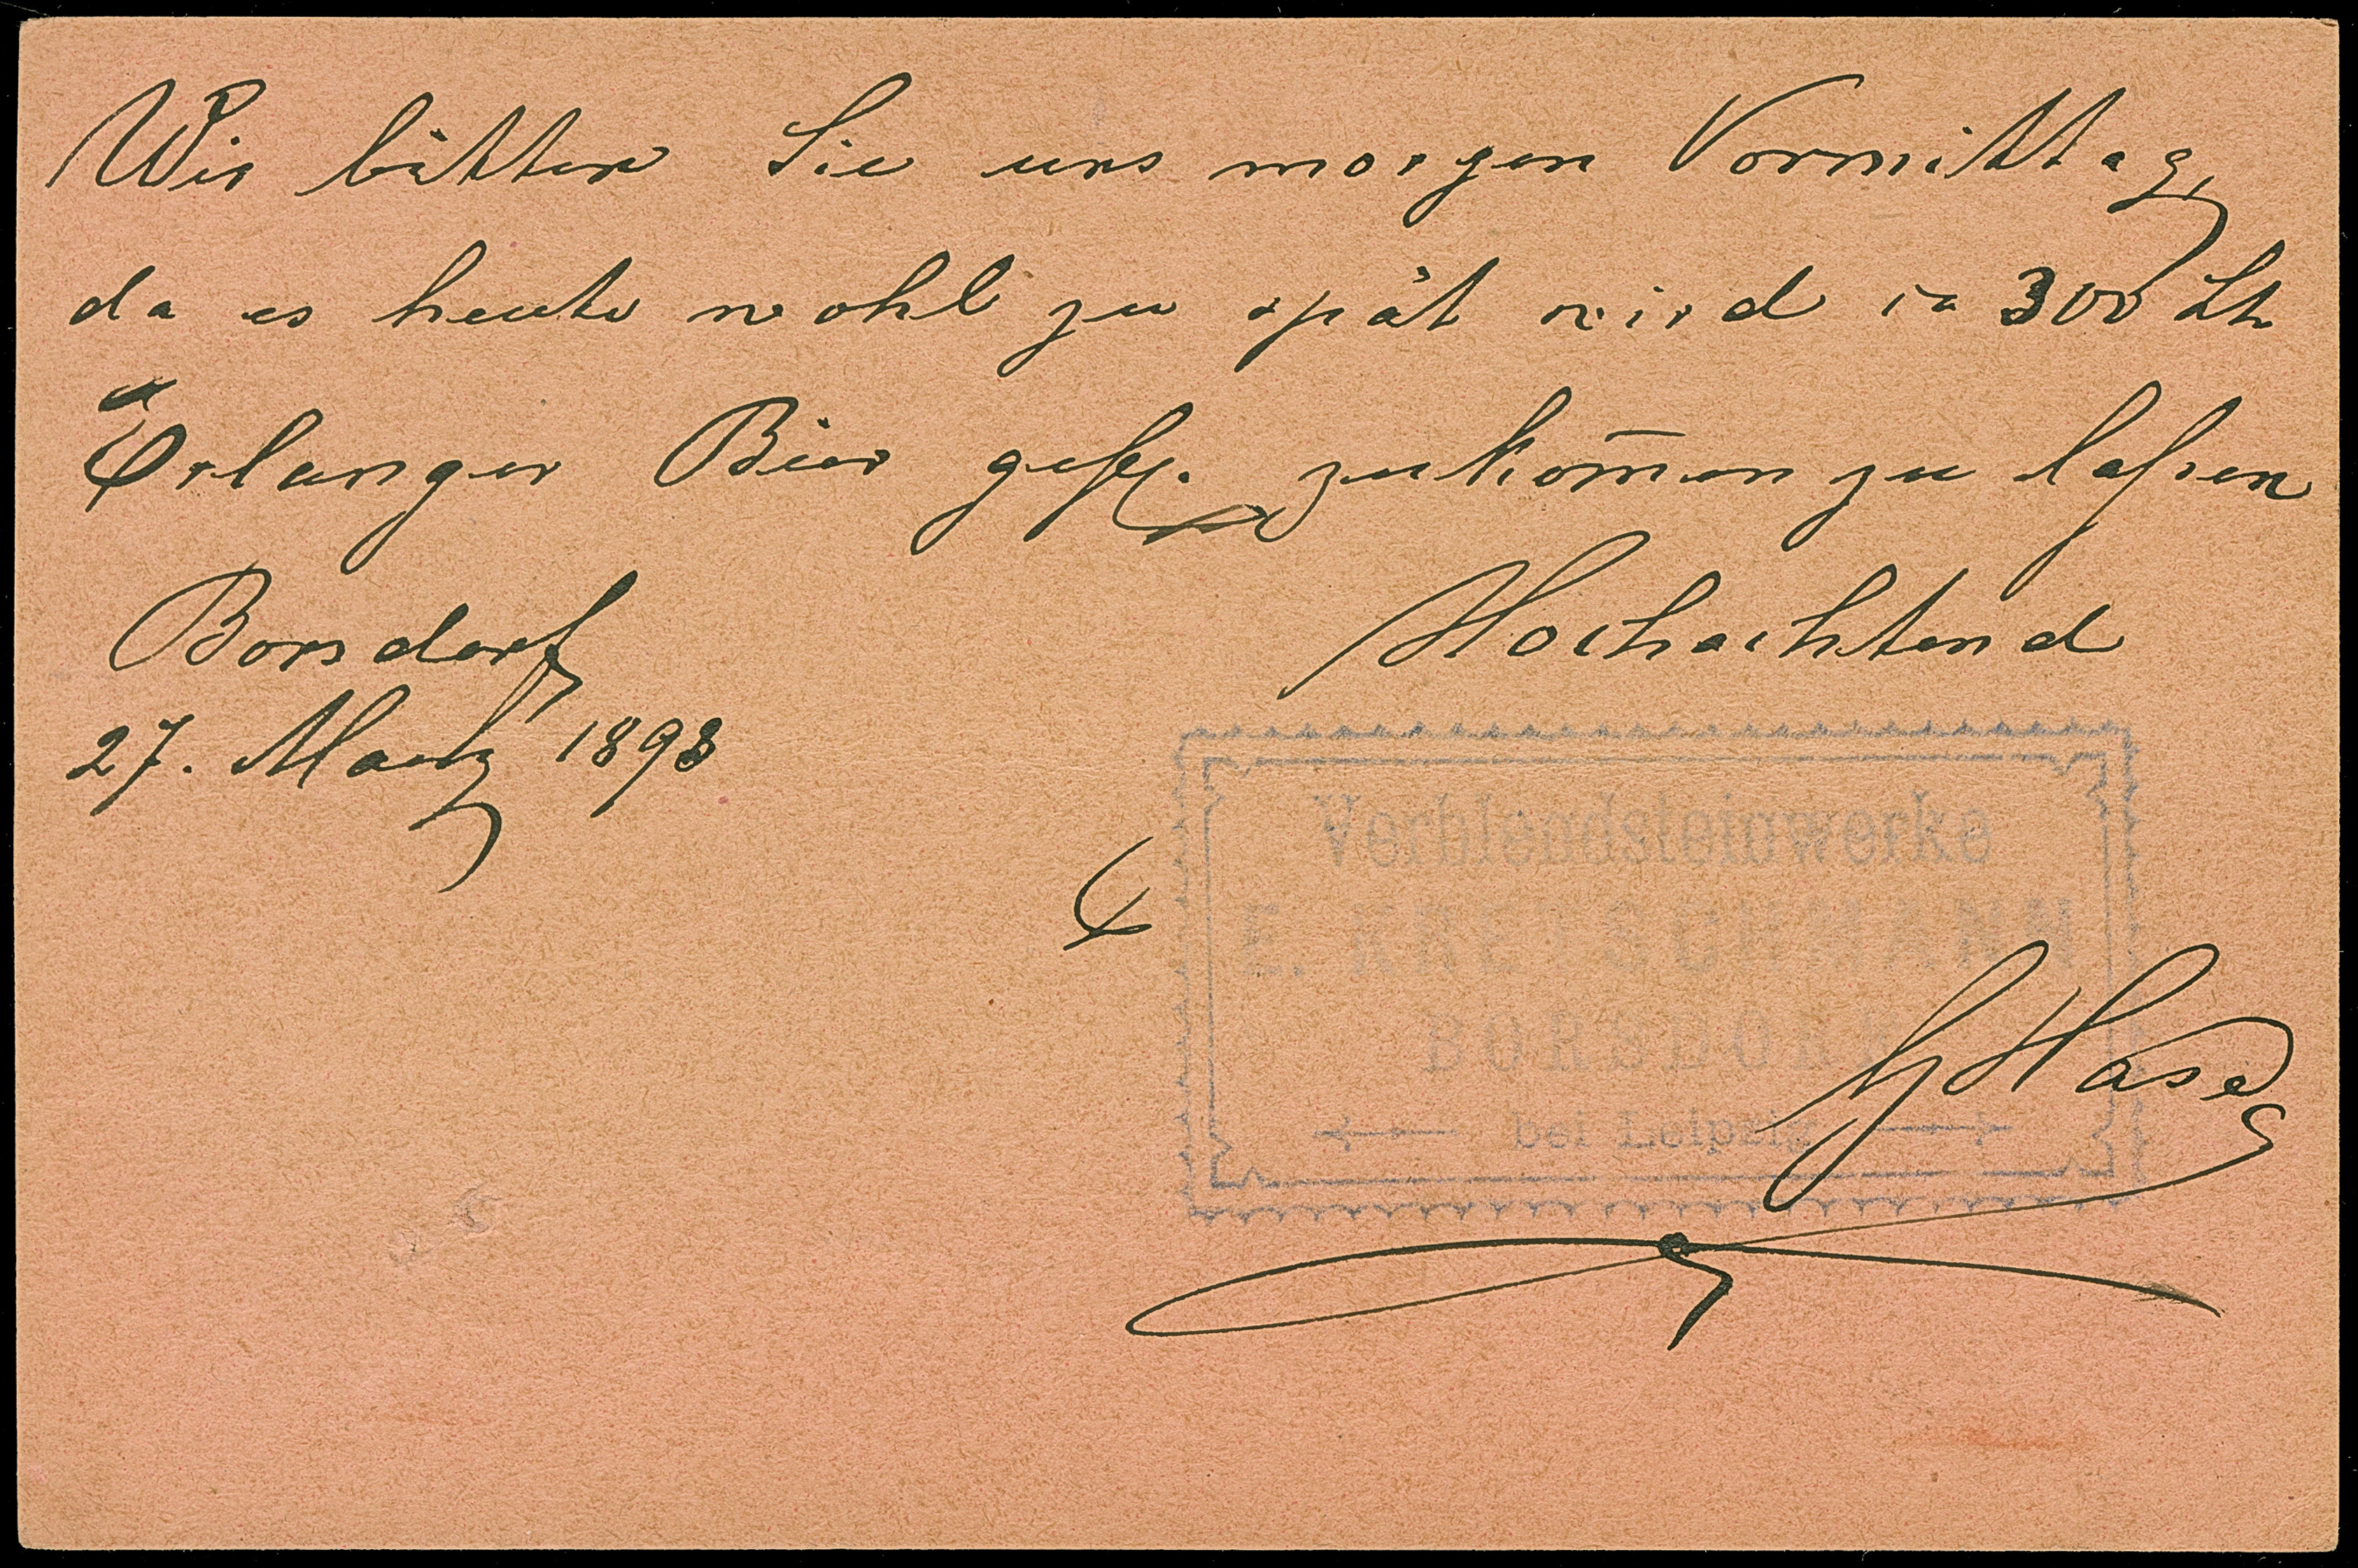 Wir bitten Sie uns morgen Vormittag,
da es heute wohl zu spät wird ca 300 Lt
Erlanger Bier gefl. zukom̅en zu laſsen
Borsdorf
Hochachtend
27. Maerz 1893
Verblendsteinwerke
E. KRETZSCHMANN
BORSDORF
bei Leipzig
Hase